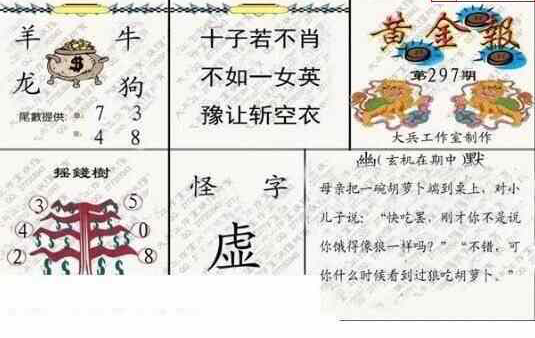 羊 牛
$
龙 狗
尾數提供: 7 3
4 8
十子若不肖
不如一女英
豫让斩空衣
黄金報
第297期
大兵工作室制作
摇錢樹
3 5
4 0
2 8
怪 字
虚
幽(玄机在期中)默
母亲把一碗胡萝卜端到桌上，对小
儿子说：“快吃罢，刚才你不是说
你饿得像狼一样吗？”“不错，可
你什么时候看到过狼吃胡萝卜。”